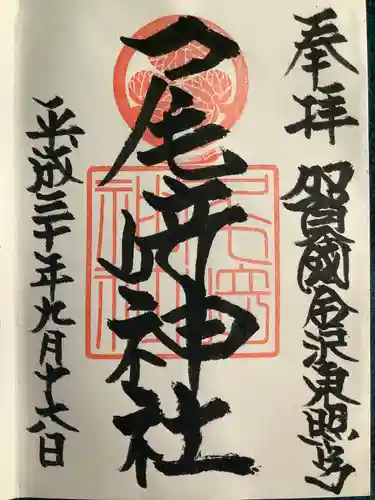 奉拝
加賀國金沢東照宮
尾崎神社
平成三十年九月十六日